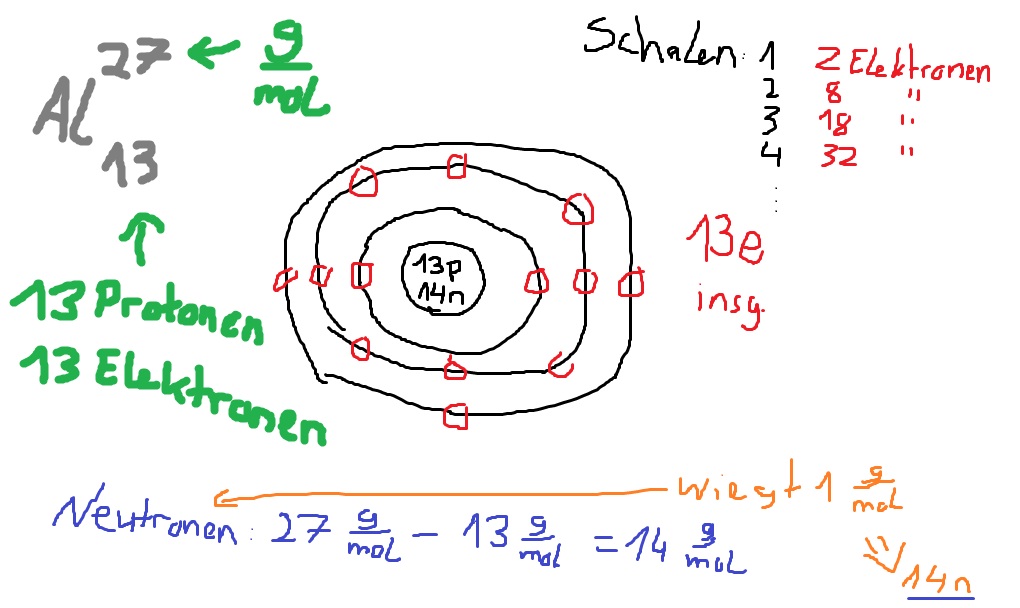 Al 27 ← g/mol
13
13 Protonen
13 Elektronen
Schalen: 1 2 Elektronen
2 8 "
3 18 "
4 32 "
13p
14n
13e
insg.
wiegt 1 g/mol
Neutronen: 27 g/mol - 13 g/mol = 14 g/mol
14n